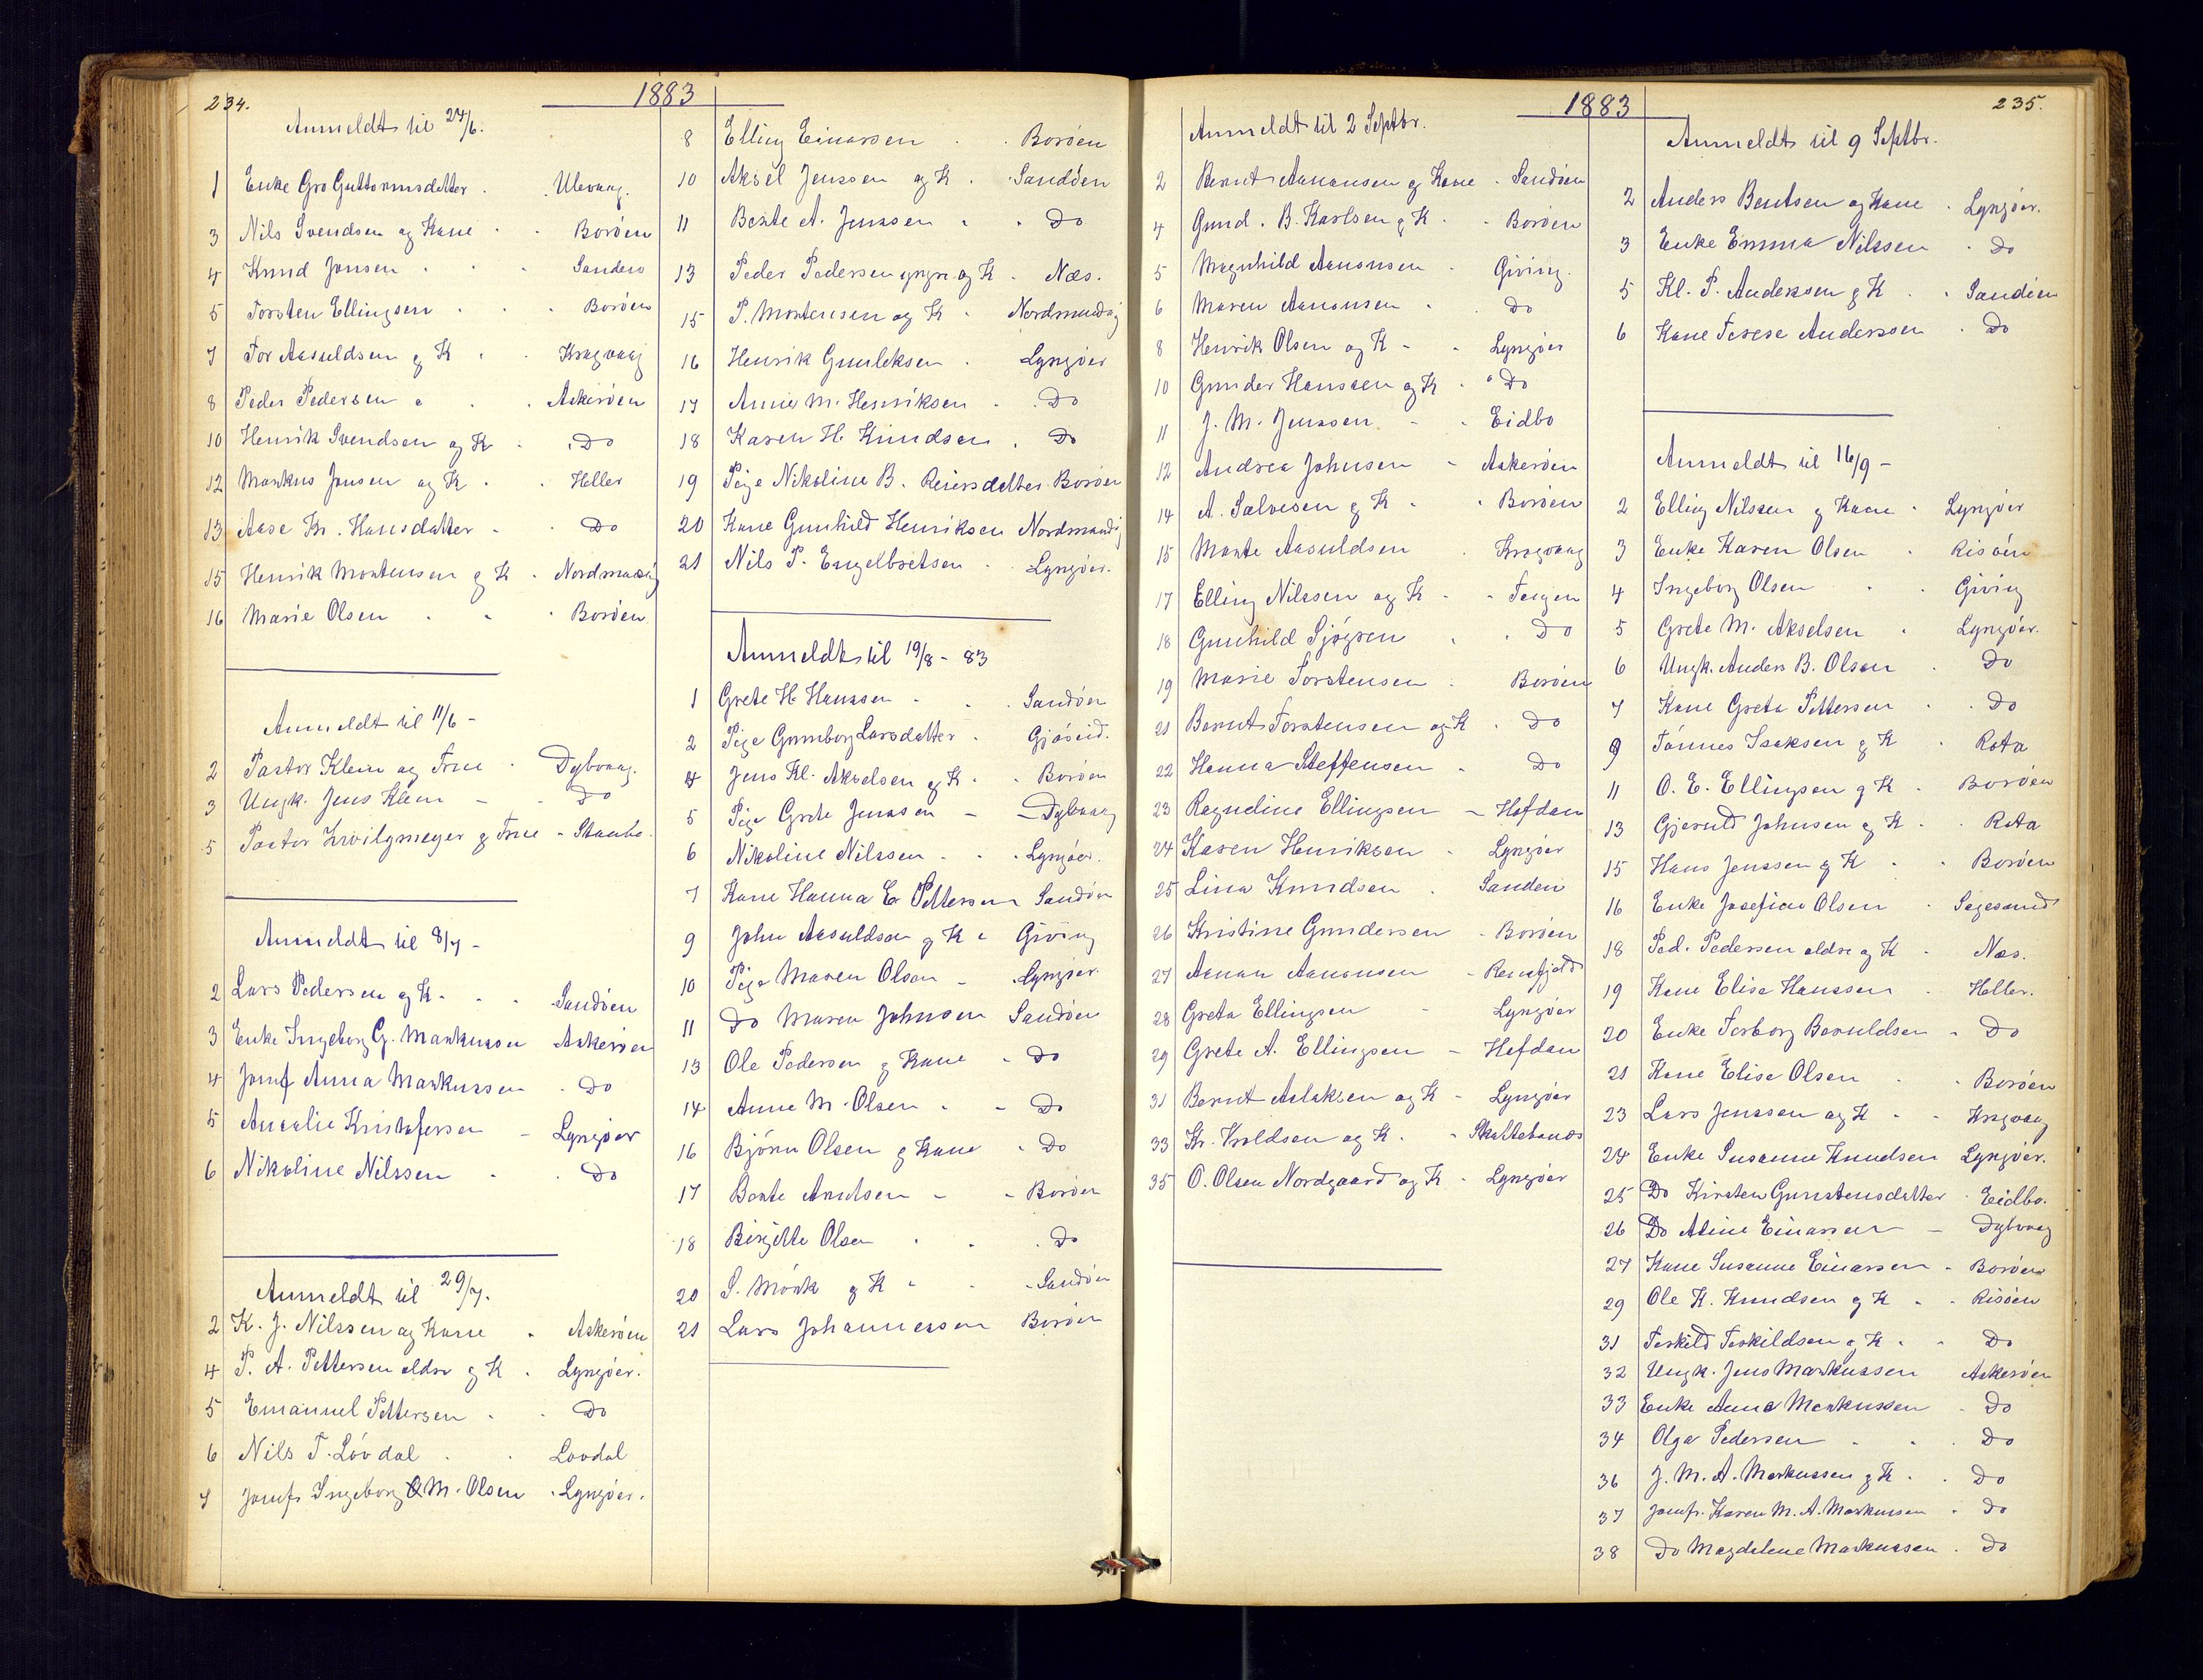 234.
1883
Anmeldt til 24/6.
1 Enke Gro Guttormsdatter . . Ulevaag.
3 Nils Svendsen og Kone . . Borøen
4 Knud Jonsen . . . Sandøen
5 Torsten Ellingsen . . . Borøen
7 Tor Aasuldsen og K . . Kragvaag
8 Peder Pedersen . . Askerøen
10 Henrik Svendsen og K . . Do
12 Markus Jensen og K . . Heller
13 Aase Kr. Hansdatter . . Do
15 Henrik Mortensen og K . Nordmandvig
16 Marie Olsen . . . Borøen
Anmeldt til 11/6 -
2 Pastor Klem og Frue . Dybvaag.
3 Ungk. Jens Klem - . Do
5 Pastor og Frue - Staubø.
Anmeldt til 8/7 -
2 Lars Pedersen og K . . . Sandøen
3 Enke Ingeborg G. Markussen Askerøen
4 Jomf Anna Markussen . Do
5 Amalie Kristofersen - Lyngøer
6 Nikoline Nilssen . . Do
Anmeldt til 29/7.
2 K. J. Nilssen og Kone . Askerøen
4 P. A. Pettersen eldre og K . Lyngøer.
5 Emanuel Pettersen . . Do
6 Nils T. Løvdal . . Lovdal
7 Jomfr Ingeborg M. Olsen . Lyngøer.
8 Elling Einarsen . . Borøen
10 Aksel Jenssen og K . . Sandøen
11 Bente A. Jenssen . . Do
13 Peder Pedersen yngre og K . Næs.
15 P. Mortensen og K . Nordmandvig
16 Henrik Gunleksen . Lyngøer
17 Anne M. Henriksen . . Do
18 Karen H. Knudsen . Do
19 Pige Nikoline B. Reiersdatter Borøen
20 Kone Gunhild Henriksen Nordmandvig
21 Nils P. Engelbretsen . . Lyngøer.
Anmeldt til 19/8 - 83
1 Grete H Hanssen . . . Sandøen
2 Pige Gunborg Larsdatter . Gjøseid.
4 Jens Kl. Akselsen og K . . Borøen
5 Pige Grete Jenssen - - Dybvaag
6 Nikoline Nilssen . . . Lyngøer.
7 Kone Hanna E. Pettersen Sandøen
9 John Aasuldsen og K . Giving
10 Pige Maren Olsen - . Lyngøer.
11 Do Maren Johnsen Sandøen
13 Ole Pedersen og Kone - Do
14 Anne M. Olsen . - Do
16 Bjørn Olsen og Kone . Do
17 Bente Arntsen - - Borøen
18 Birgitte Olsen . . . Do
20 S. Mørk og K . - Sandøen
21 Lars Johannessen Borøen
1883
235.
Anmeldt til 2 Septbr.
2 Bernt Aanonsen og Kone . Sandøen
4 Gund. B. Karlsen og K . . Borøen
5 Magnhild Aanonsen . Giving.
6 Maren Aanonsen . . Do
8 Henrik Olsen og K - . Lyngøer
10 Gunder Hanssen og K . . Do
11 J. M. Jenssen . - . Eidbo
12 Andrea Johnsen - Askerøen
14 A. Salvesen og K . . Borøen
15 Monte Aasuldsen . Kragvaag
17 Elling Nilssen og K . - Teigen
18 Gunhild Sjøgren . . Do
19 Marie Torstensen . Borøen
21 Bernt Torstensen og K . Do
22 Hanna Steffensen . Do
23 Ragndine Ellingsen - Hofdan
24 Karen Henriksen . Lyngøer
25 Lina Knudsen . Sandøen
26 Kristine Gundersen - Borøen
27 Aanon Aanonsen -
28 Greta Ellingsen - Lyngøer
29 Grete A. Ellingsen - Hofdan
31 Bernt Aslaksen og K - Lyngøer
33 Kr. Iroldsen og K . - Skottebands
35 O. Olsen Nordgaard og K . Lyngøer
Anmeldt til 9 Septbr.
2 Anders Bentsen og Kone . Lyngøer.
3 Enke Emma Nilssen . Do
5 Kl. P. Andersen og K . . Sandøen
6 Kone Terese Anderssen . Do
Anmeldt til 16/9 -
2 Elling Nilssen og Kone . Lyngøer
3 Enke Karen Olsen . Risøen
4 Ingeborg Olsen . . Giving
5 Grete M. Akselsen . Lyngøer.
6 Ungk. Anders B. Olsen . Do
7 Kone Greta Pettersen . . Do
9 Tønnes Isaksen og K . Rota
11 O. E. Ellingsen og K . Borøen
13 Gjeruld Johnsen og K . . Rota
15 Hans Jenssen og K . . Borøen
16 Enke Josefine Olsen . Sagesund
18 Ped. Pedersen eldre og K . Næs.
19 Kone Elise Hanssen . Heller.
20 Enke Torborg Beruldsen . Do
21 Kone Elise Olsen . . Borøen
23 Lars Jenssen og K . . Kragvaag
24 Enke Susanne Knudsen Lyngøer.
25 Do Kirsten Gunstensdatter . Eidbo.
26 Do Aline Einarssen - Dybvaag
27 Kone Susanne Einarssen . Borøen
29 Ole K. Knudsen og K . . Risøen
31 Terkild Terkildsen og K . . Do
32 Ungk. Jens Markussen Askerøen
33 Enke Anna Markussen . Do
34 Olga Pedersen . . . Do
36 J. M. A. Markussen og K . . Do
37 Jomfr. Karen M. A. Markussen . Do
38 Do Magdalene Markussen . Do